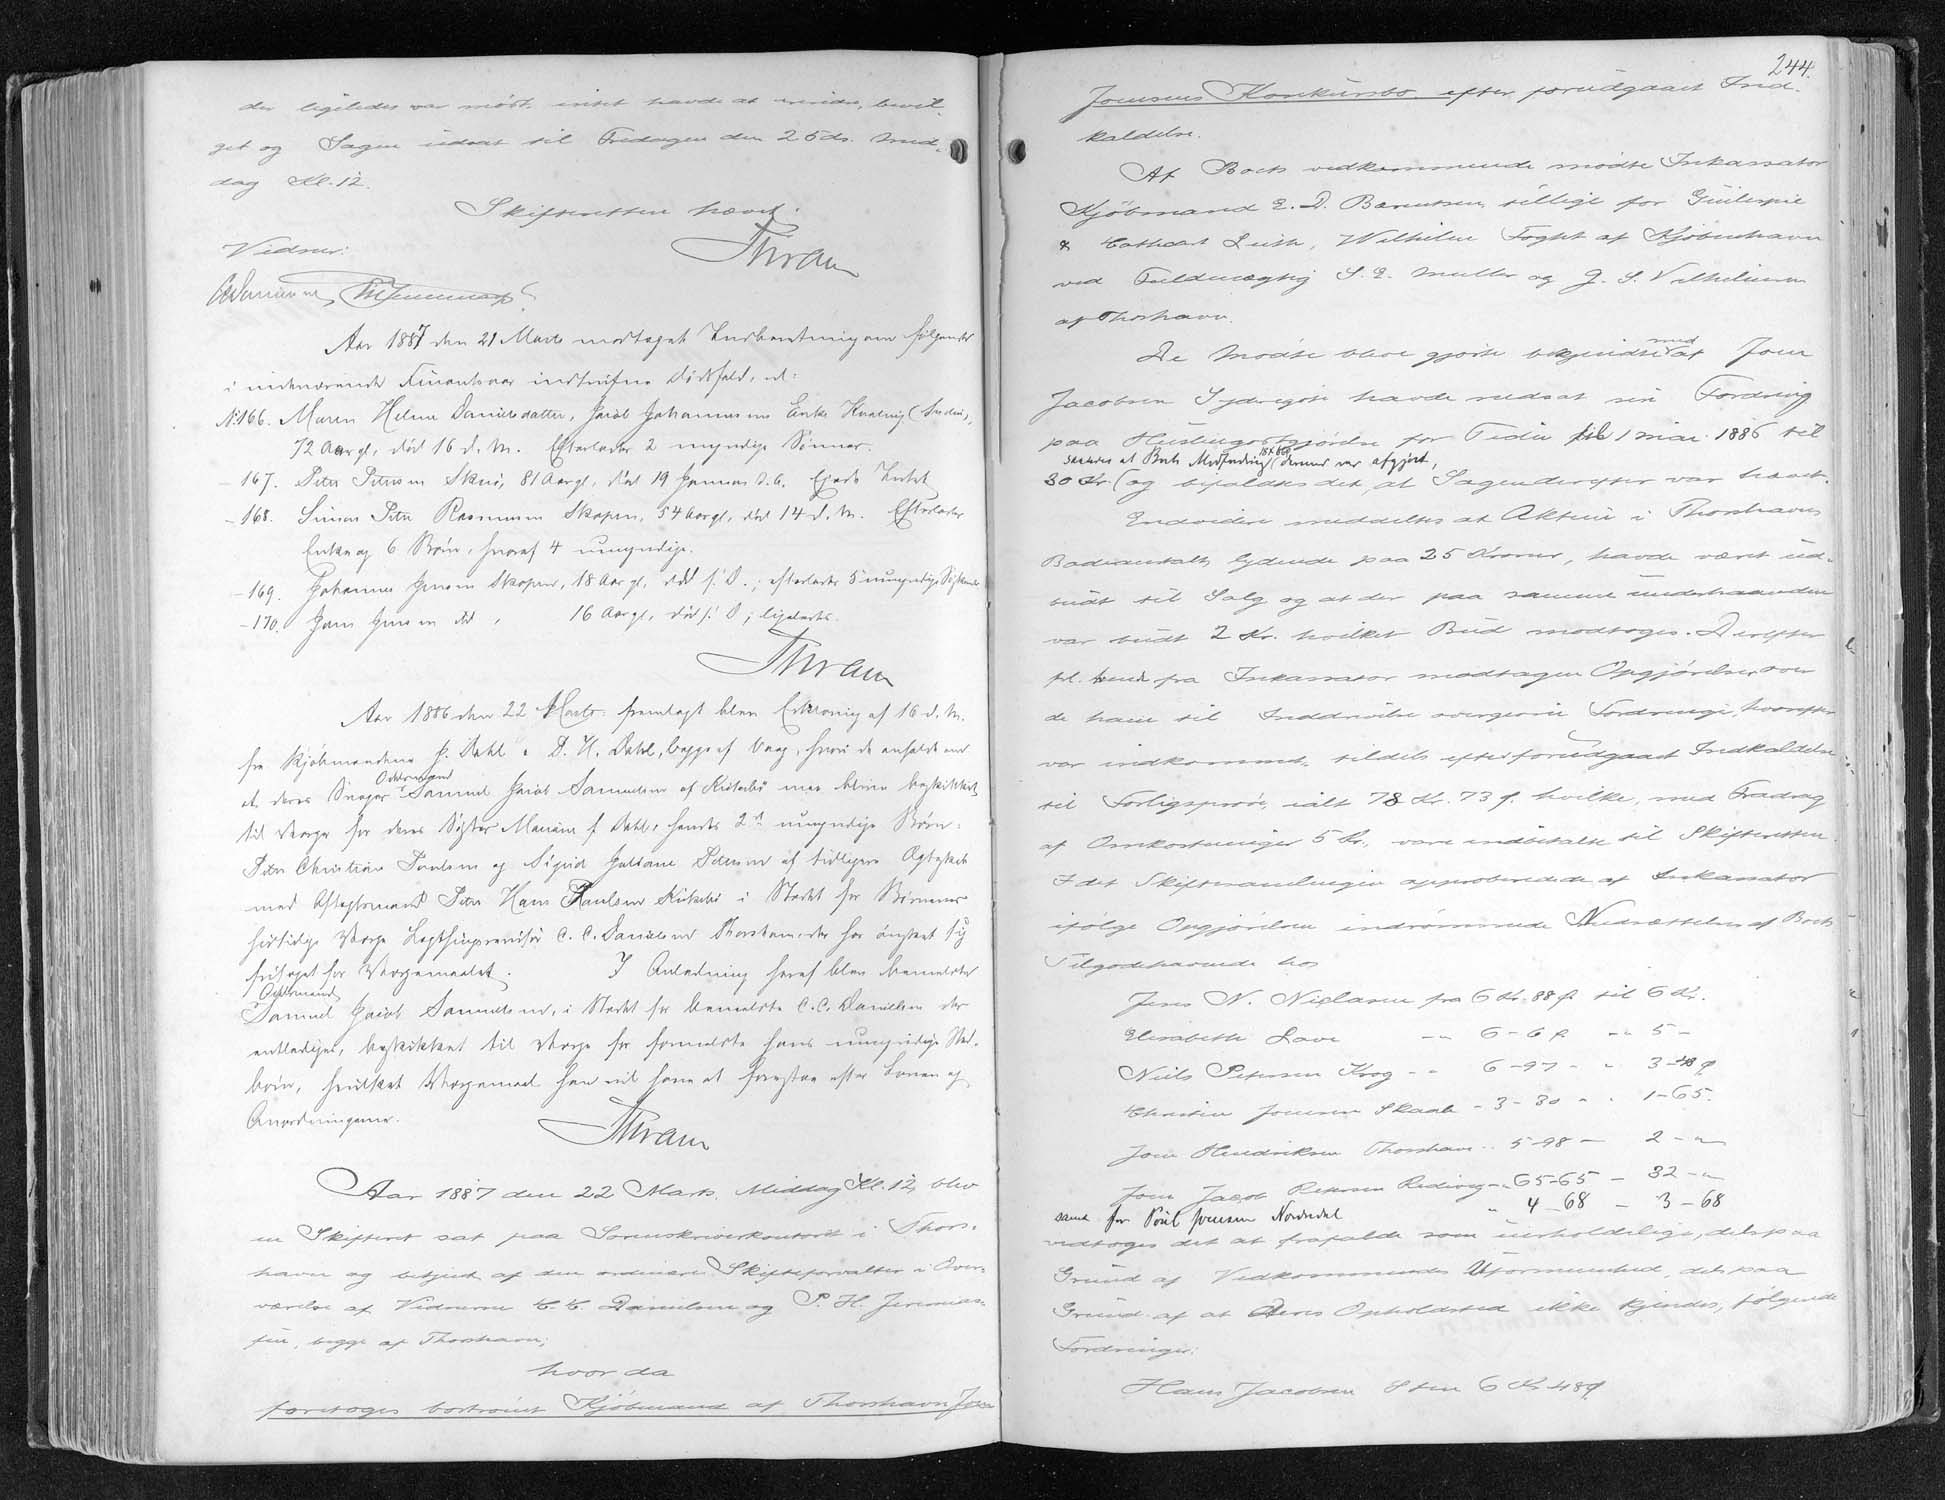 der ligeledes var mødt, intet havde at erindre, bevil-
get og Sagen udsat til Fredagen den 25 ds. Mid-
dag Kl. 12.
Skifteretten hævet.
Thran
Vidner:
Aar 1887 den 21 Marts modtaget Indberetning om følgende
i indeværende Finantsaar indtrufne Dødsfald, nl:
No 166. Maren Helene Danielsdatter, Jacob Johannesens Enke Hvalvig
72 Aar gl, død 16 d. M. Efterlader 2 myndige Sønner.
- 167. Peter Petersen Skuø, 81 Aar gl, død 19 Januar d. A. Ejede Intet
- 168. Simon Peter Rasmussen Skopen, 54 Aar gl, død 14 d. M. Efterlader
Enke og 6 Børn, hvoraf 4 umyndige.
- 169. Johannes Jensen Skopen, 18 Aar gl, død s. D.; efterlader 5 umyndige Søskende
- 170. Hans Jensen ibd, 16 Aar gl, død s. D; ligeledes.
Thran
Aar 1886 den 22 Marts fremlagt blev Erklæring af 16 d. M.
fra Kjøbmændene J. Dahl & D. H. Dahl, begge af Vaag, hvori de anholdt om
at deres Svoger Odelsmand Samuel Jacob Samuelsen af Kirkebø maa blive beskikket
til Værge for deres Søster Mariane f. Dahls, hendes 2de umyndige Børn:
Peter Christian Poulsen og Sigrid Juliane Petersen af tidligere Ægteskab
med Afdøde Peter Hans Poulsen Kirkebø i Stedet for Børnenes
hidtidige Værge Lagthingsrevisor C. C. Danielsen Thorshavn, der har ønsket sig
fritaget for Værgemaalet. I Anledning heraf blev bemeldte
Odelsmand
Samuel Jacob Samuelsen, i Stedet for bemeldte C. C. Danielsen der
entlediges, beskikket til Værge for formeldte hans umyndige Sted-
børn, hvilket Værgemaal han vil have at forestaa efter Loven og
Anordningerne.
Thran
Aar 1887 den 22 Marts, Middag Kl. 12, blev
en Skifteret sat paa Sorenskriverkontoret i Thors-
havn og betjent af den ordinære Skifteforvalter i Over-
værelse af Vidnerne C. C. Danielsen og P. H. Jeremias-
sen, begge af Thorshavn;
hvor da
foretoges bortrømt Kjøbmand af Thorshavn
244.
Joensens Konkursbo efter forudgaaet Ind-
kaldelse.
Af Boets vedkommende mødte Inkassator
Kjøbmand E. D. Bærentsen tillige for Gillespie
& Cathcart Leith, Wilhelm Foght af Kjøbenhavn
ved Fuldmægtig S. E. Müller og J. S. Vilhelmsen
af Thorshavn.
De Mødte bleve gjorte bekjendte med at Joen
Jacobsen Sydregøte havde nedsat sin Fordring
paa Huslingodtgjørelse for Tiden til 1 Mai 1886 til
30 Kr. (saaledes at Boets Modfordring dermed var afgjort,
og bifaldtes det, at Sagen derefter var hævet.
Endvidere meddeltes at Aktien i Thorshavns
Badeanstalt, lydende paa 25 Kroner, havde været ud-
budt til Salg og at der paa samme underhaanden
var budt 2 Kr. hvilket Bud modtoges. Derefter
fra Inkassator modtagen Opgjørelse over
de ham til Inddrivelse overgivne Fordringer, hvorefter
var indkommet, tildels efter forudgaaet Indkaldelse
til Forligsprøve, ialt 78 Kr. 73 Ø. hvilke, med Fradrag
af Omkostninger 5 Kr., vare indbetalte til Skifteretten.
I det Skiftesamlingen approberede de af Inkassator
ifølge Opgjørelsen indrømmede Nedsættelser af Boets
Tilgodehavende hos
Jens N. Niclasen fra 6 Kr. 88 Ø. til 6 Kr.
Elisabeth Lave -"- 6 - 6 Ø. -"- 5 -
Niels Petersen Krog - " 6 - 97 - " 3 - 48 Ø
Christian Joensen Skaale - 3 - 30 " " 1 - 65.
Joen Hendriksen Thorshavn " 5 - 98 - 2 - "
Joen Jacob Petersen Redivig - " 65 - 65 - 32 - "
samt for Poul Joensen Nordredal " 4 - 68 - 3 - 68
vedtoges det at frafalde som uerholdelige, dels paa
Grund af Vedkommendes Uformuenhed, dels paa
Grund af at deres Opholdssted ikke kjendes, følgende
Fordringer:
Hans Jacobsen Sten 6 Kr 48 Ø